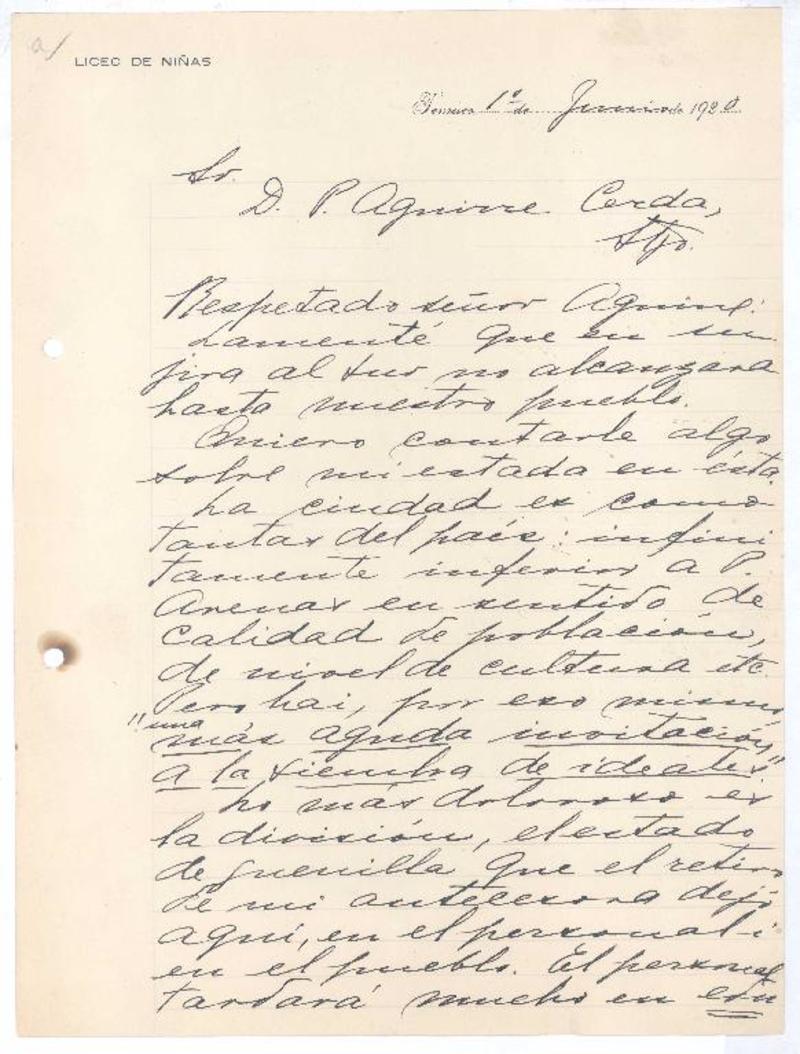 a/
LICEO DE NIÑAS
Temuco 1º de Junio de 1920
Sr.
D. P. Aguirre Cerda,
Stgo.
Respetado señor Aguirre:
Lamenté que en su
jira al sur no alcanzara
hasta nuestro pueblo.
Quiero contarle algo
sobre mi estada en ésta.
La ciudad es como
tantas del país: infini
tamente inferior a P.
Arenas en sentido de
calidad de población,
de nivel de cultura etc.
Pero hai, por eso mismo
"una
más aguda invitación
a la siembra de ideales".
Lo más doloroso es
la división, el estado
de guerrilla que el retiro
de mi antecesora dejó
aquí, en el personal i
en el pueblo. El personal
tardará mucho en con